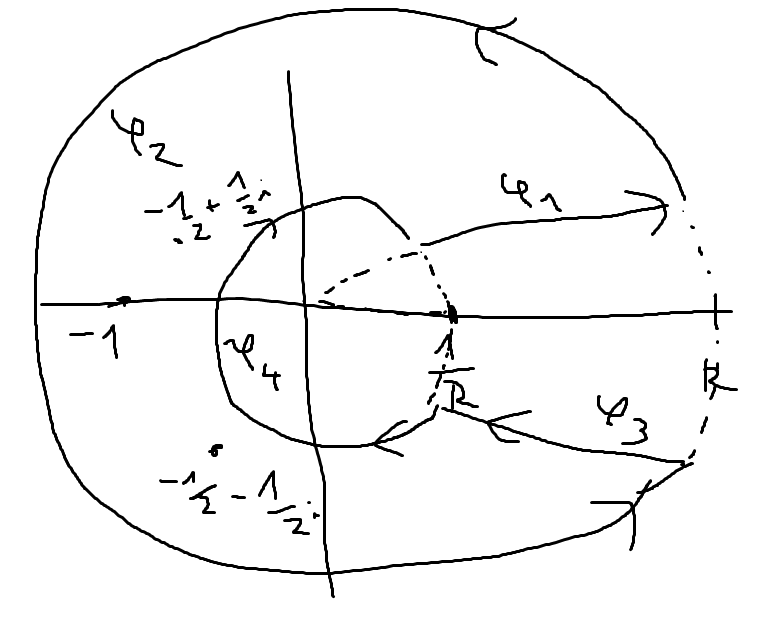 φ2
φ1
-1/2 + 1/2 i
-1
φ4
1/R
R
φ3
-1/2 - 1/2 i